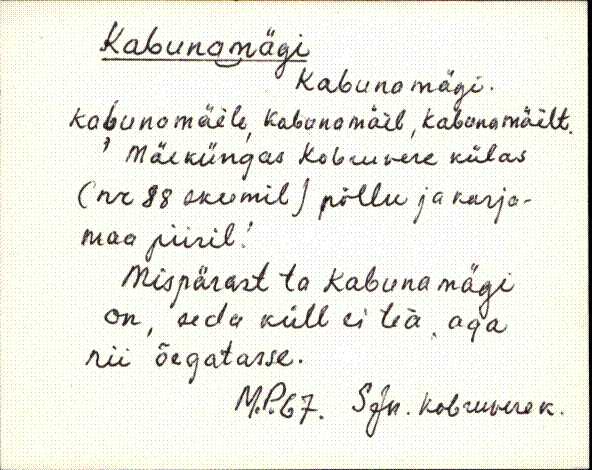 Kabunamägi
Kabunamägi.
kabunamäele, kabunamäel, kabunamäelt.
'Mäeküngas Kobruvere külas
(nr 88 skeemil) põllu ja karja-
maa piiril.'
Mispärast ta Kabunamägi
on, seda küll ei teä, aga
nii õegatasse.
M.P.67. Sjn. Kobruvere k.